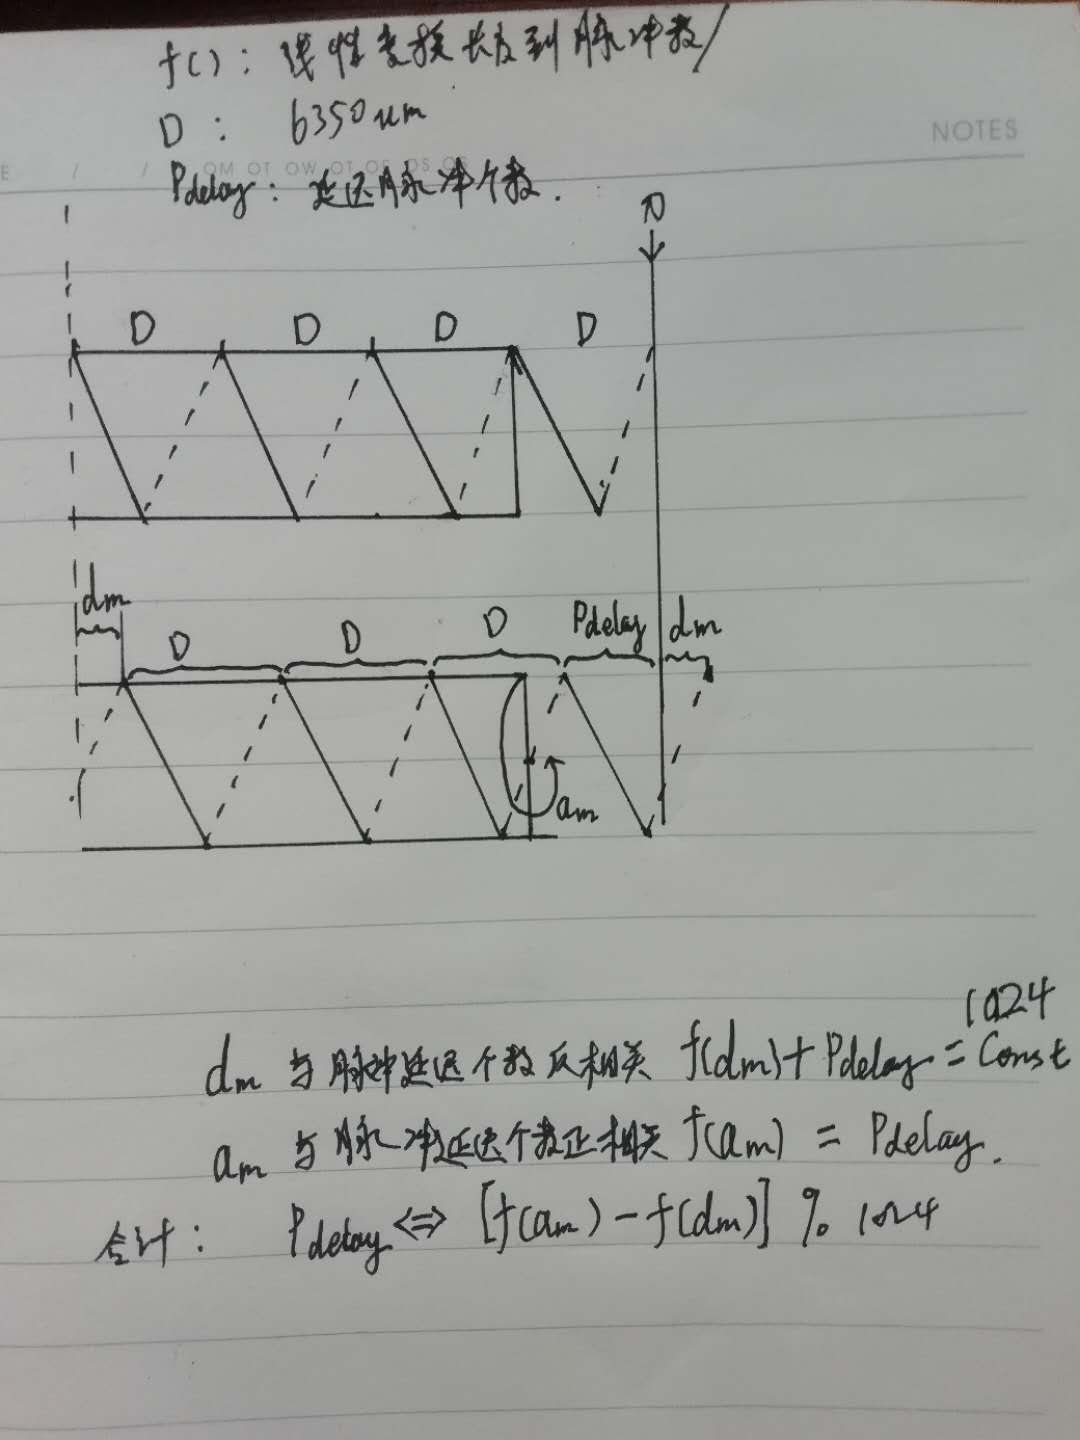 f(): 线性变换长度到脉冲数/
D: 6350um
NOTES
Pdelay: 延迟脉冲个数.
D D D D
dm D D D Pdelay dm
am
1024
dm 与脉冲延迟个数反相关 f(dm)+Pdelay=Const
am 与脉冲延迟个数正相关 f(am) = Pdelay.
合计: Pdelay⇔ [f(am)-f(dm)] % 1024